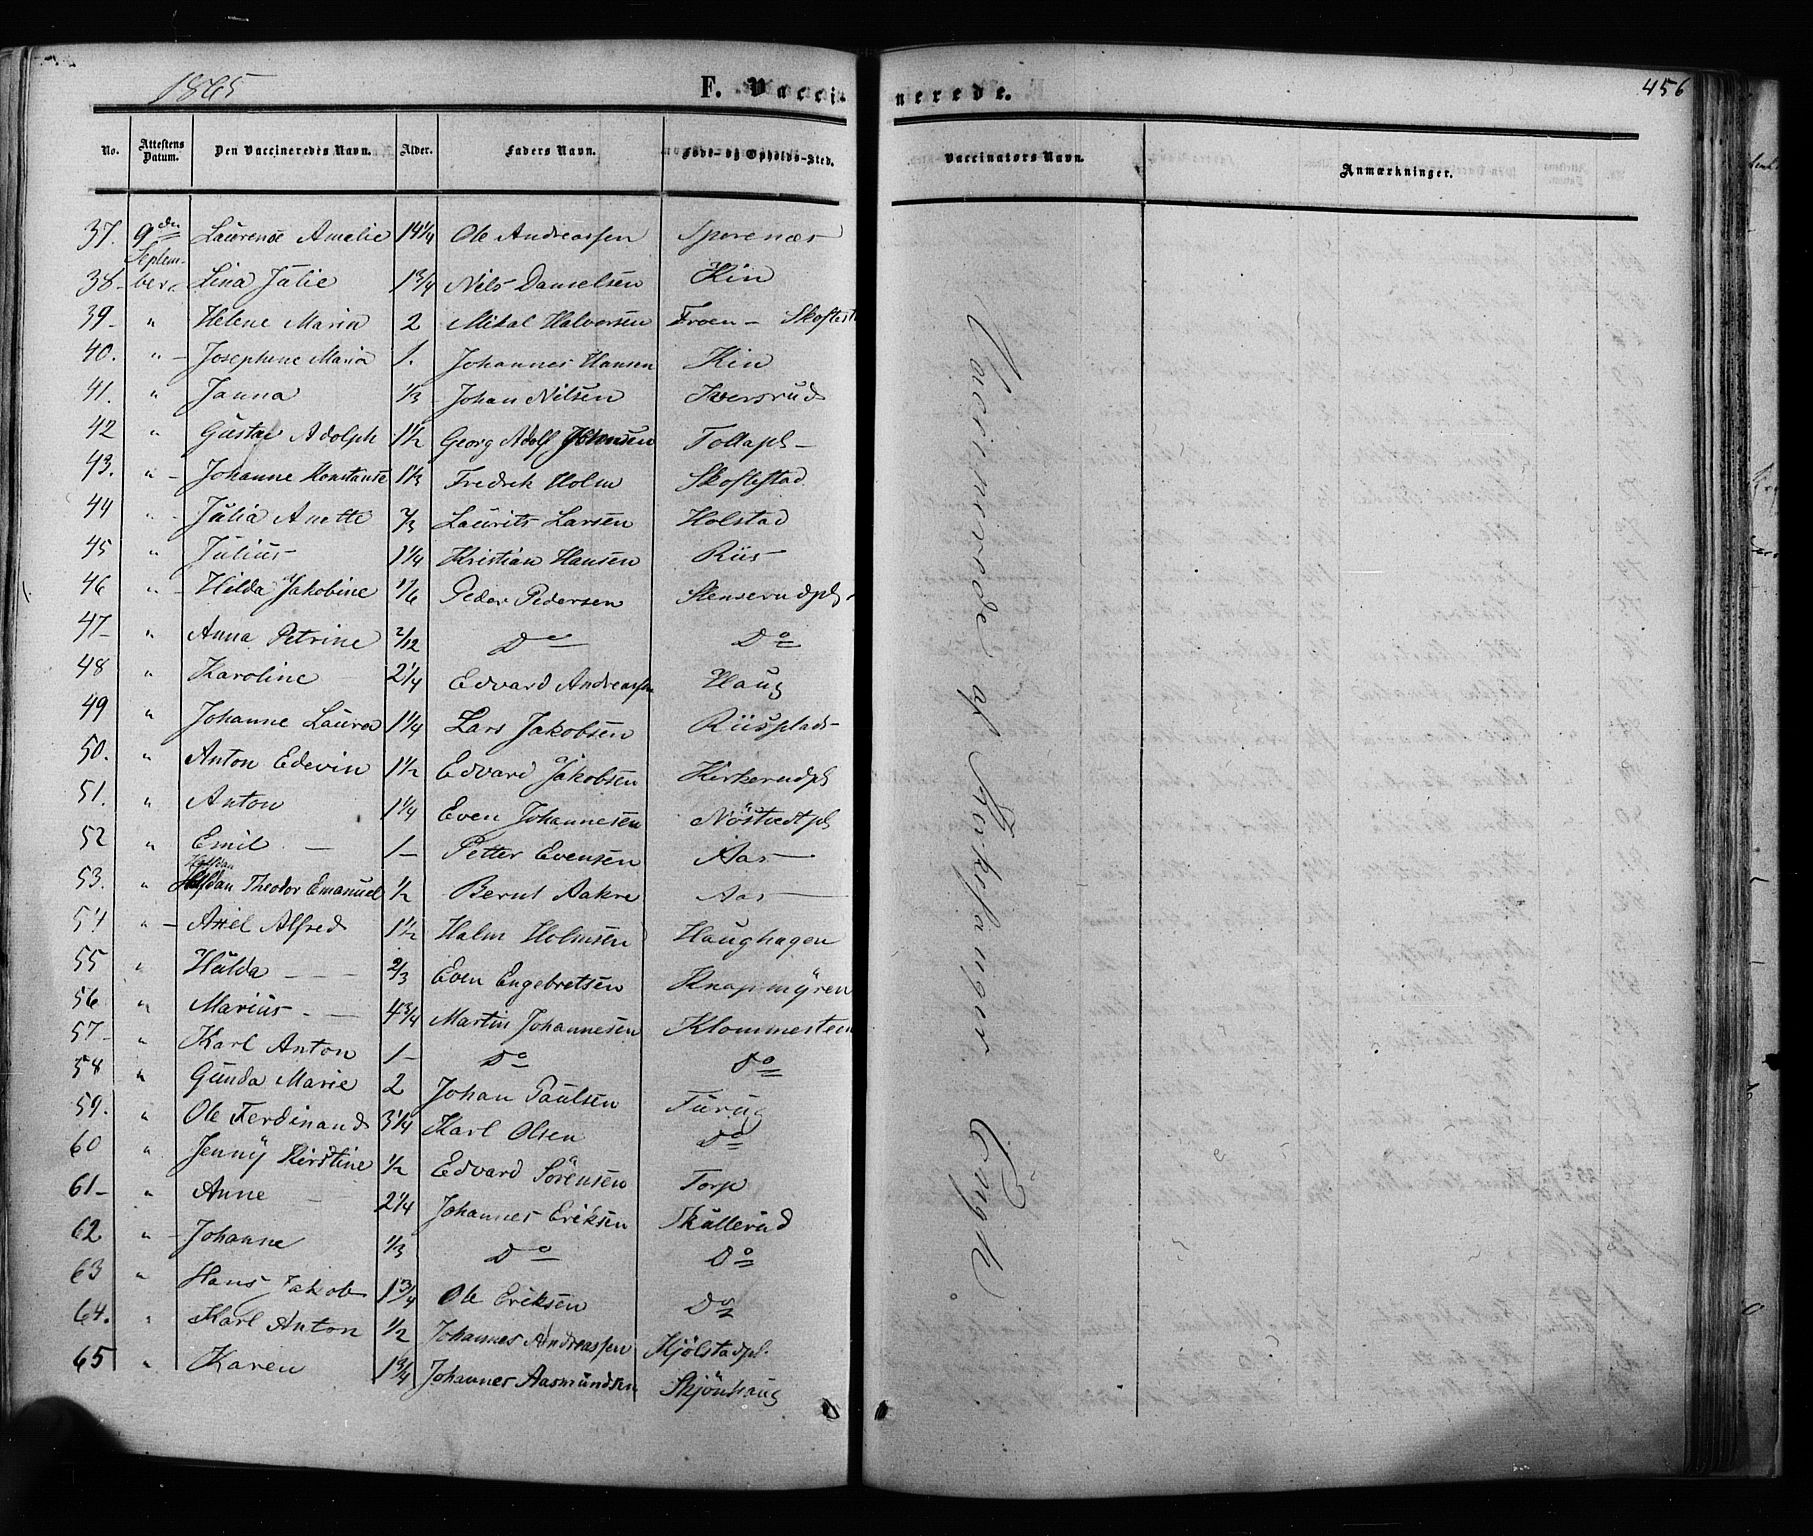 1865
F. Vaccinerede.
456
No. Attestens Datum. Den Vaccineredes Navn. Alder. Faders Navn. Føde- og Opholds-Sted. Vaccinators Navn. Anmærkninger.
37. 9den Laurense Amalie 14 1/4 Ole Andreassen Sporenæs
Septem-
38- ber Lina Julie 1 3/4 Nils Danielsen Kin
39- " Helene Maria 2 Mikal Halvorsen Froen - Skoftest
40. " - Josephine Maria 1. Johannes Hansen Kin
41. " Janna 1/3 Johan Nilsen Iversrud
42 " Gustav Adolph 1 1/2 Georg Adolf Johnsen Tollapl-
43. " - Johanne Konstanse 1 1/3 Fredrik Holm Skoftestad
44 " - Julia Anette 2/3 Laurits Larsen Holstad
45 " Julius 1 1/4 Kristian Hansen Riis
46 " - Hilda Jakobine 1/6 Peder Pedersen Stenserudpl
47- " Anna Petrine 2/12 Do Do
48 " Karoline 2 1/4 Edvard Andreassen Haug
49 " Johanne Laura 1 1/4 Lars Jakobsen Riisplads-
50. " Anton Edevin 1 1/2 Edvard Jakobsen Kirkerudpl
51. " Anton 1 1/4 Even Johannesen Nöstvedtpl
52 " Emil - 1- Petter Evensen Aas-
Halfdan
53. " Halfdan Theodor Emanuel 1/2 Bernt Aakre Aas-
54 " - Axel Alfred 1 1/2 Halm Holmsen Haughagen
55 " Hulda - - - 2/3 Even Engebretsen Knapmÿren
56 " Marius - - 4 3/4 Martin Johannesen Klommesteen
57- " Karl Anton 1- Do Do
58 " Gunda Marie 2 Johan Paulsen Turug
59. " Ole Ferdinand 3 1/4 Karl Olsen Do
60 " Jennÿ Kirstine 1/2 Edvard Sörensen Torp
61- " Anne 2 1/4 Johannes Eriksen Skullerud
62 " - Johanne 1/3 Do Do
63 " Hans Jakob 1 3/4 Ole Eriksen Do
64. " Karl Anton 1/2 Johannes Andreassen Kjölstadpl.
65 " Karen 1 3/4 Johannes Aasmundsen Skjönhaug
Vaccinerede af Kirkesanger Engh.